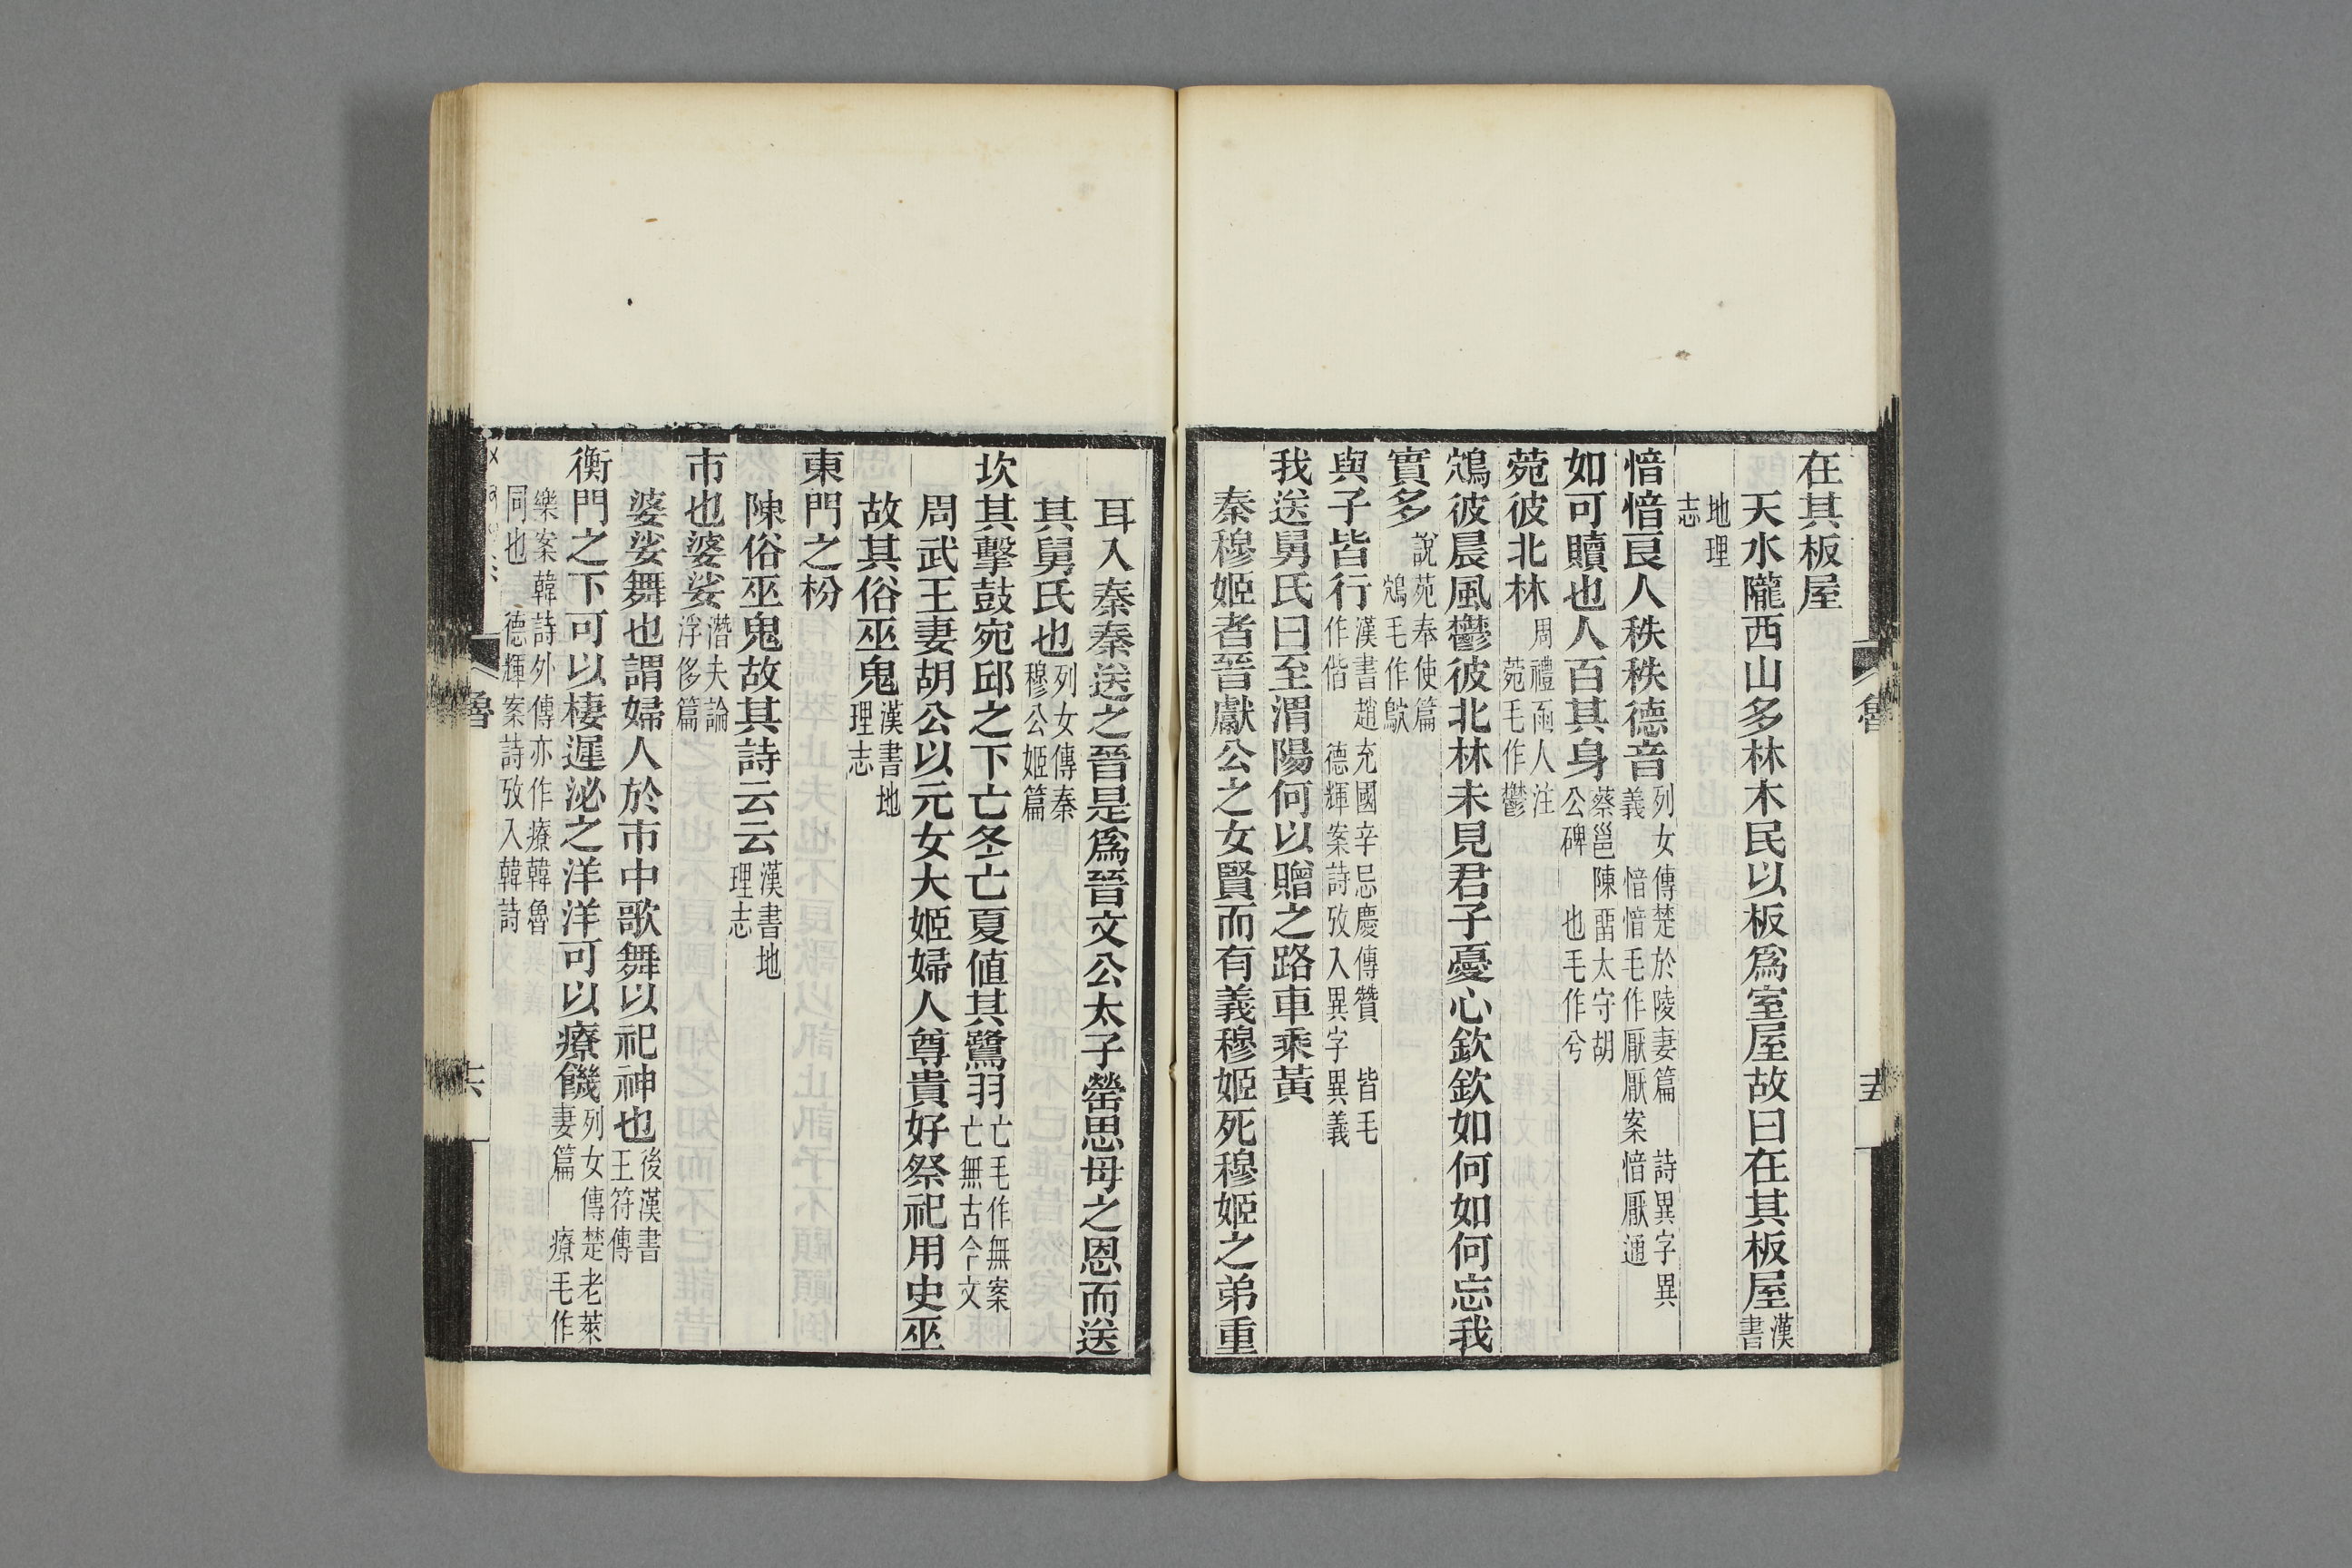 在其板屋
天水隴西山多林木民以板爲室屋故曰在其板屋漢書
地理志
愔愔良人秩秩德音列女傳楚於陵妻篇 詩異字異義 愔愔毛作厭厭案愔厭通
如可贖也人百其身蔡邕陳畱太守胡公碑 也毛作兮
菀彼北林周禮凾人注 菀毛作鬱
鴆彼晨風鬱彼北林未見君子憂心欽欽如何如何忘我
實多說苑奉使篇 鴆毛作鴥
與子皆行漢書趙充國辛忌慶傳贊 皆毛作偕 德輝案詩攷入異字異義
我送舅氏曰至渭陽何以贈之路車乘黃
秦穆姬者晉獻公之女賢而有義穆姬死穆姬之弟重
魯
耳入秦秦送之晉是爲晉文公太子罃思母之恩而送
其舅氏也列女傳秦穆公姬篇
坎其擊鼓宛邱之下亡冬亡夏値其鷺羽亡毛作無案亡無古今文
周武王妻胡公以元女大姬婦人尊貴好祭祀用史巫
故其俗巫鬼漢書地理志
東門之枌
陳俗巫鬼故其詩云云漢書地理志
市也婆娑潛夫論浮侈篇
婆娑舞也謂婦人於市中歌舞以祀神也後漢書王符傳
衡門之下可以棲遲泌之洋洋可以療饑列女傳楚老萊妻篇 療毛作
樂案韓詩外傳亦作療韓魯同也 德輝案詩攷入韓詩
魯